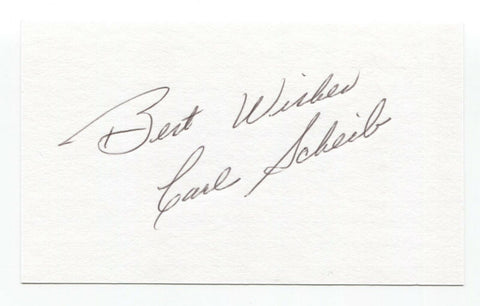 Best Wishes
Carl Scheib